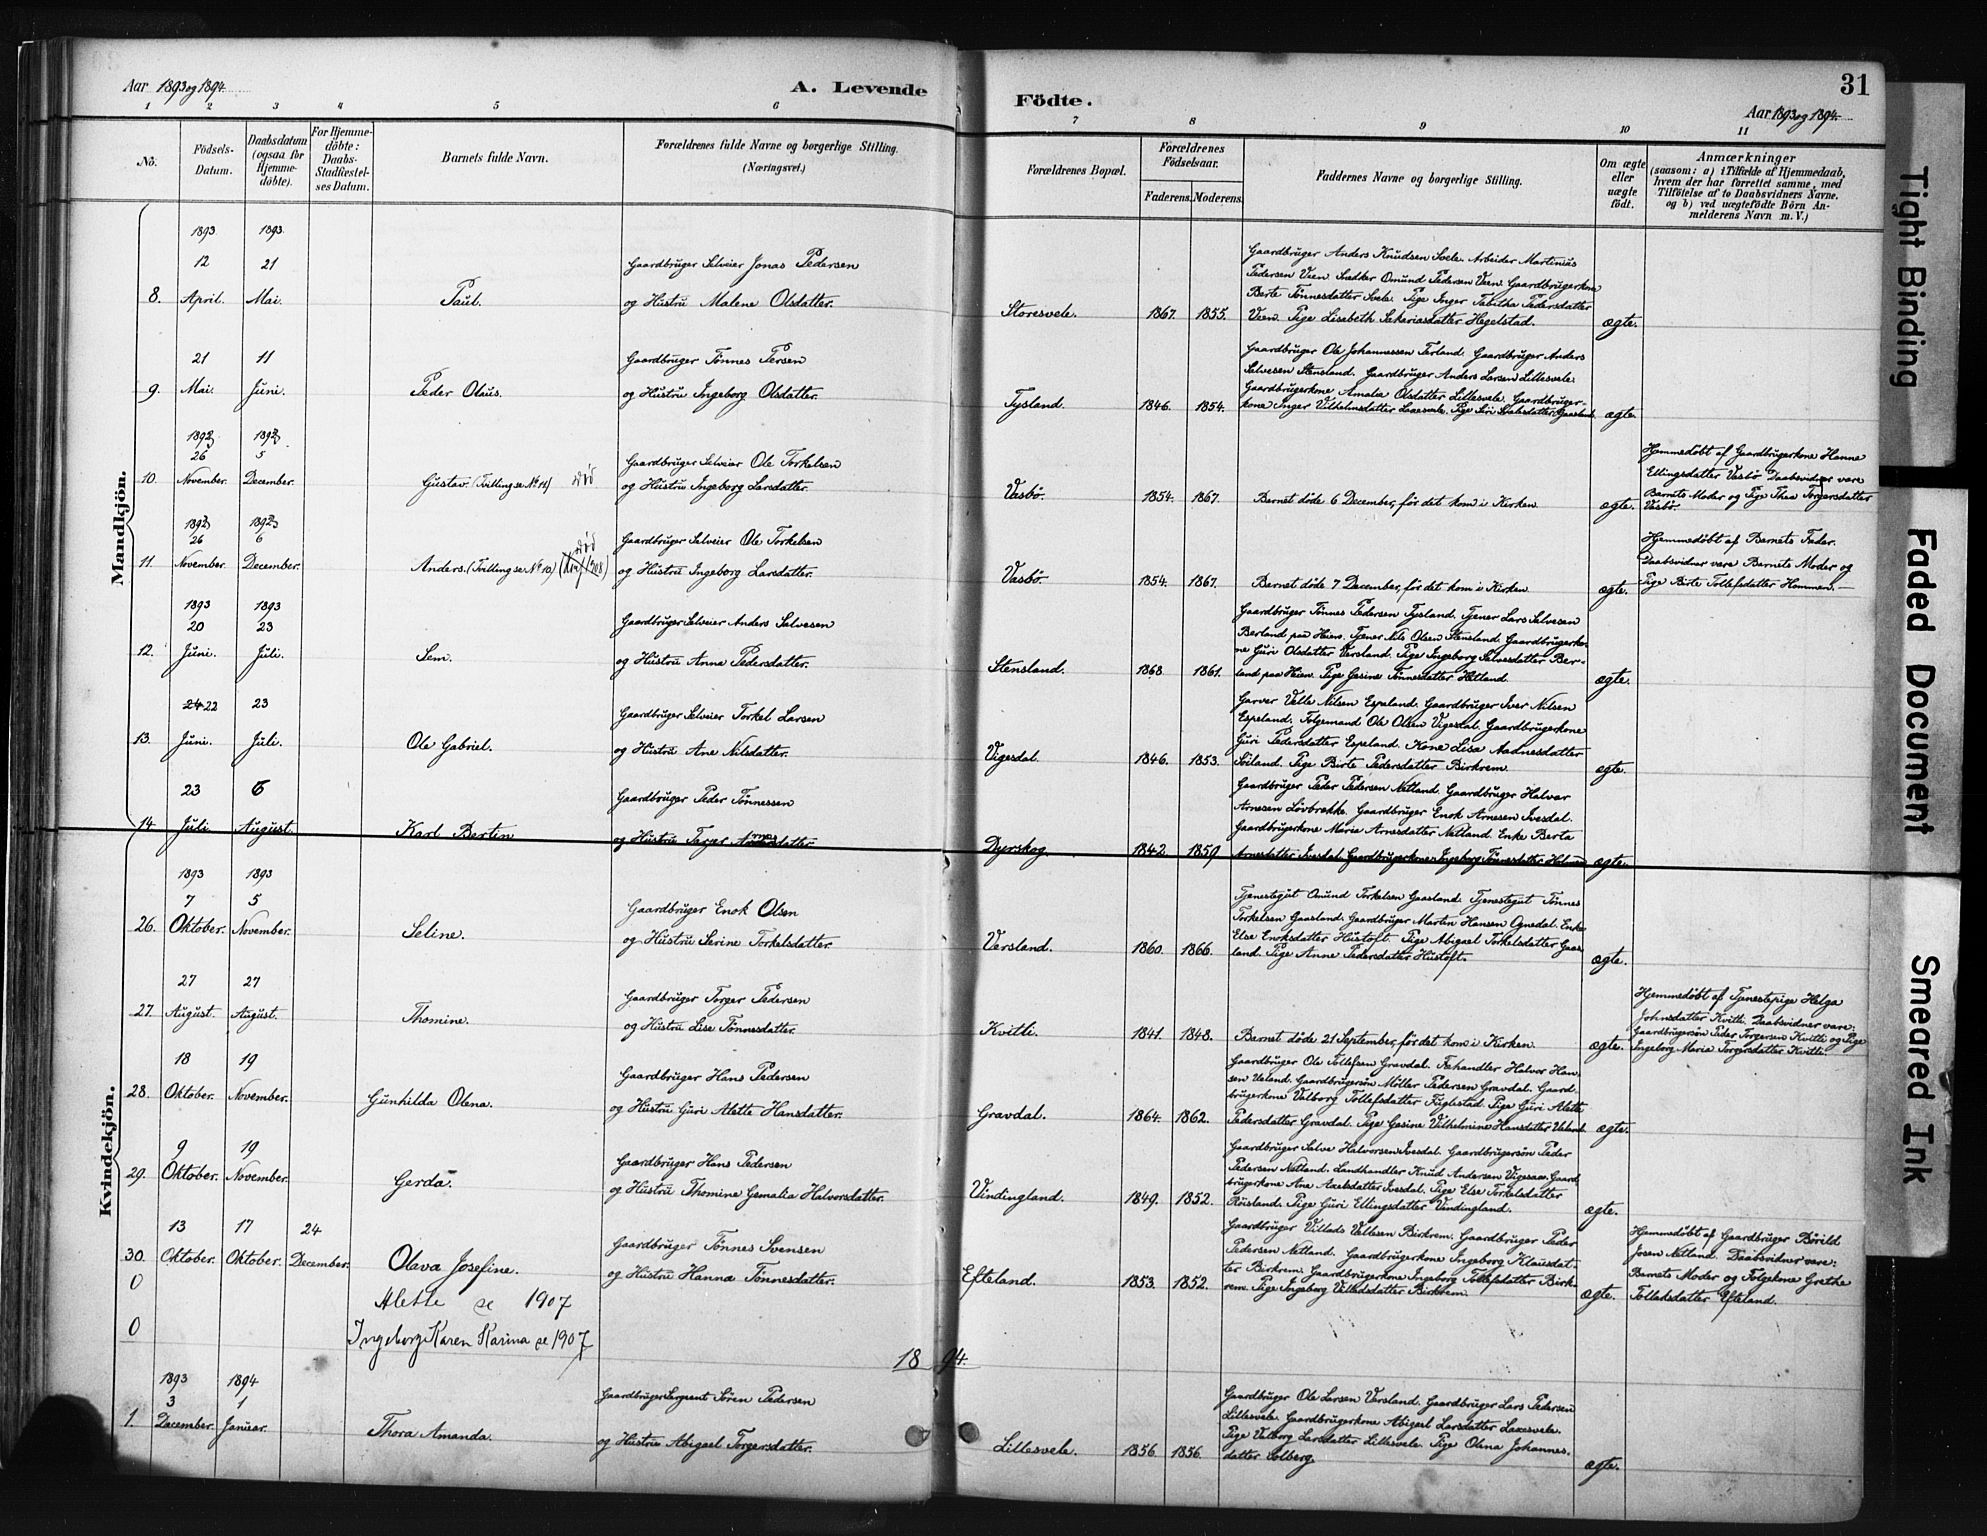 Aar 1893 og 1894.
A. Levende
Födte.
31
Aar 1893 og 1894.
1 2 3 4 5 6 7 8 9 10 11
No.
Födsels-Datum.
Daabsdatum (ogsaa for Hjemme-döbte).
For Hjemme-döbte: Daabs-Stadfæstel-ses Datum.
Barnets fulde Navn.
Forældrenes fulde Navne og borgerlige Stilling. (Næringsvei.)
Forældrenes Bopæl.
Forældrenes Födselsaar.
Faderens. Moderens.
Faddernes Navne og borgerlige Stilling.
Om ægte eller uægte födt.
Anmærkninger
(saasom: a) i Tilfælde af Hjemmedaab,
hvem der har forrettet samme, med
Tilföielse af to Daabsvidners Navne.
og b) ved uægtefödte Börn An-
melderens Navn m. V.)
Mandkjön.
1893 1893
12 21
8. April. Mai.
Paul.
Gaardbruger Selveier Jonas Pedersen
og Hustru Malene Olsdatter.
Storesvele. 1867. 1855.
Gaardbruger Anders Knudsen Svele. Arbeider Martinius
Pedersen Veen. Snedker Omund Pedersen Veen. Gaardbrugerkone
Berte Tönnesdatter Svele. Pige Inger Tabitha Pedersdatter
Veen. Pige Lisabeth Sekariasdatter Hegelstad.
ægte.
21 11
9. Mai. Juni.
Peder Olaus.
Gaardbruger Tönnes Persen
og Hustru Ingeborg Olsdatter.
Tysland. 1846. 1854.
Gaardbruger Ole Johannessen Terland. Gaardbruger Anders
Salvesen Stensland. Gaardbruger Anders Larsen Lillesvele.
Gaardbrugerkone Amalia Olsdatter Lillesvele. Gaardbruger-
kone Inger Vilhelmsdatter Laxesvele. Pige Siri Salvesdatter Gaasland.
ægte.
1892 1892
26 5
10. November. December.
Gustav. (Tvilling se No 11) död
Gaardbruger Selveier Ole Torkelsen
og Hustru Ingeborg Larsdatter.
Vasbö. 1854. 1867.
Barnet döde 6 December, för det kom i Kirken.
ægte.
Hjemmedöbt af Gaardbrugerkone Hanne
Ellingsdatter Vasbö Daabsvidner vare
Barnets Moder og Pige Thea Torgersdatter
Vasbö.
1892 1892
26 6
11. November. December.
Anders. (Tvilling se No 10) död
Gaardbruger Selveier Ole Torkelsen
og Hustru Ingeborg Larsdatter.
Vasbö. 1854. 1867.
Barnet döde 7 December, för det kom i Kirken.
ægte.
Hjemmedöbt af Barnets Fader.
Daabsvidner vare Barnets Moder og
Pige Birte Tollefsdatter Hommen.
1893 1893
20 23
12. Juni. Juli.
Sem.
Gaardbruger Selveier Anders Salvesen
og Hustru Anne Pedersdatter.
Stensland. 1868. 1861.
Gaardbruger Tönnes Pedersen Tysland. Tjener Lars Salvesen
Berland paa Heien. Tjener Nils Olsen Stensland. Gaardbrugerko-
ne Guri Olsdatter Versland. Pige Ingeborg Salvesdatter Ber-
land paa Heien. Pige Gesine Tönnesdatter Hetland.
ægte.
24 22 23
13. Juni. Juli.
Ole Gabriel.
Gaardbruger Selveier Torkel Larsen
og Hustru Ane Nilsdatter.
Vigesdal. 1846. 1853.
Garver Velle Nilsen Espeland. Gaardbruger Iver Nilsen
Espeland. Folgemand Ole Olsen Vigesdal. Gaardbrugerkone
Guri Pedersdatter Espeland. Kone Lisa Aadnesdatter
Soiland. Pige Birte Pedersdatter Birkrem.
ægte.
23 6
14. Juli. August.
Karl Bertin
Gaardbruger Peder Tönnessen
og Hustru Terger Arnesdatter
Dyrskog 1842. 1859
Gaardbruger Peder Pedersen Netland. Gaardbruger Halvor
Arnesen Lövbrække. Gaardbruger Enok Arnesen Ivesdal.
Gaardbrugerkone Maria Arnesdatter Netland. Enke Berta
Arnesdatter Ivesdal. Gaardbrugerkone Ingeborg Tönnesdatter
ægte.
Kvindekjön.
1893 1893
7 5
26. Oktober. November.
Seline.
Gaardbruger Enok Olsen
og Hustru Serine Torkelsdatter.
Versland. 1860. 1866.
Tjenestegut Omund Torkelsen Gaasland. Tjenestegut Tönnes
Torkelsen Gaasland. Gaardbruger Marten Hansen Ognedal. Enke
Else Enoksdatter Hustoft. Pige Abigael Torkelsdatter Gaas-
land. Pige Anne Pedersdatter Hustoft.
ægte.
27 27
27. August. August.
Thomine.
Gaardbruger Torger Pedersen
og Hustru Lise Tönnesdatter.
Kvitli. 1841. 1848.
Barnet döde 21 September, för det kom i Kirken.
ægte.
Hjemmedöbt af Tjenestepige Helga
Johnsdatter Kvitli. Daabsvidner vare:
Gaardbrugersön Peder Torgersen Kvitli og Pige
Ingeborg Maria Torgersdatter Kvitli.
18 19
28. Oktober. November.
Gunhilda Olena.
Gaardbruger Hans Pedersen
og Hustru Guri Alette Hansdatter.
Gravdal. 1864. 1862.
Gaardbruger Ole Tollefsen Gravdal. Fæhandler Halvor Han-
sen Ueland. Gaardbrugersön Möller Pedersen Gravdal. Gaard-
brugerkone Valborg Tollefsdatter Fuglestad. Pige Guri Alette
Pedersdatter Gravdal. Pige Gesine Vilhelmine Hansdatter Ueland.
ægte.
9 19
29. Oktober. November.
Gerda.
Gaardbruger Hans Pedersen
og Hustru Thomine Gemalia Halvorsdatter.
Vindingland. 1849. 1852.
Gaardbruger Salve Halvorsen Ivesdal. Gaardbrugersön Peder
Pedersen Netland. Landhandler Knud Andersen Vigesaa. Gaard-
brugerkone Ane Axelsdatter Ivesdal. Pige Else Torkelsdatter
Röisland. Pige Guri Ellingsdatter Vindingland.
ægte.
13 17 24
30. Oktober. Oktober. December.
Olava Josefine.
Gaardbruger Tönnes Svensen
og Hustru Hanna Tönnesdatter.
Efteland. 1853. 1852.
Gaardbruger Villads Vellesen Birkrem. Gaardbruger Peder
Pedersen Netland. Gaardbrugerkone Ingeborg Klausdat-
ter Birkrem. Gaardbrugerkone Ingeborg Tollefsdatter Birk-
rem. Pige Ingeborg Villadsdatter Birkrem.
ægte.
Hjemmedöbt af Gaardbruger Börild
Josen Netland. Daabsvidner vare:
Barnets Moder og Folgekone Grethe
Tolladsdatter Efteland.
0 Alette se 1907
0 Ingeborg Karen Karina se 1907
1894.
1893 1894
3 1
1. December. Januar.
Thora Amanda.
Gaardbruger Sergeant Sören Pedersen
og Hustru Abigael Torgersdatter.
Lillesvele. 1856. 1856.
Gaardbruger Ole Larsen Versland. Gaardbruger Lars Pedersen
Lillesvele. Gaardbrugerkone Abigael Larsdatter Laxesvele.
Pige Valborg Larsdatter Lillesvele. Pige Olena Johannes-
datter Solberg.
ægte.
Tight Binding
Faded Document
Smeared Ink